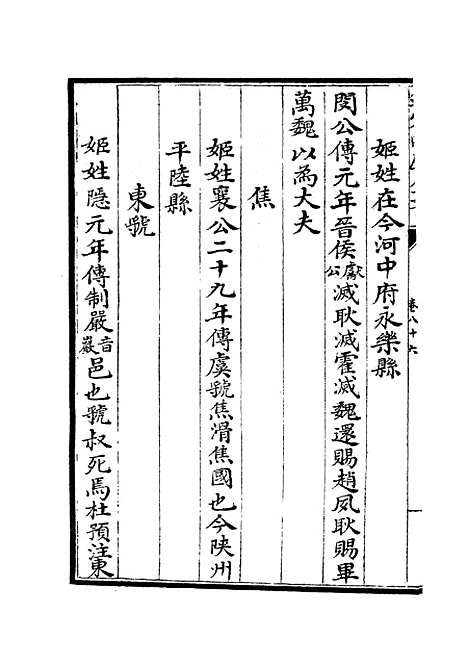 姬姓在今河中府永樂縣
閔公傳元年晉侯獻公滅耿滅霍滅魏還賜趙夙耿賜畢
萬魏以為大夫
焦
姬姓襄公二十九年傳虞虢焦滑焦國也今陝州
平陸縣
東虢
姬姓隱元年傳制嚴音巖邑也虢叔死焉杜預注東
卷八十六